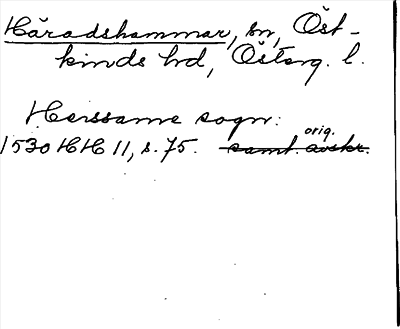 Häradshammar, sn, Öst-
kinds hd, Österg. l.
Herssamre sogn:
orig.
1530 HH 11, s. 75. samt. avskr.